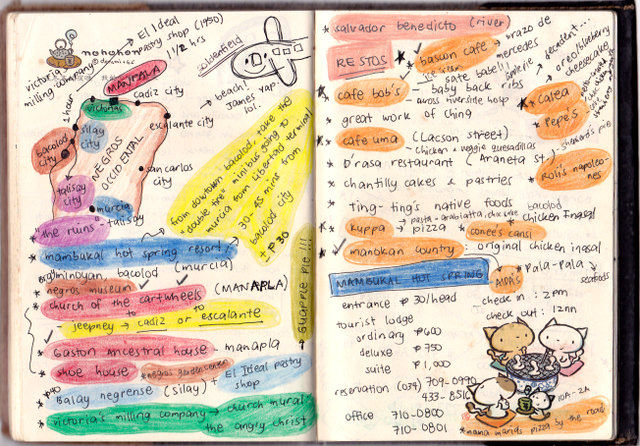 nohohon
El Ideal
pastry shop (1920)
1 1/2 hrs
victoria
milling company
MANAPLA
cadiz city
1 hour
victorias
silay
city
escalante
city
bacolod
city
NEGROS
OCCIDENTAL
san carlos
city
talisay
city
murcia
GOLDENFIELD
beach!
James Yap.
lol.
from dowtown bacolod, take the
"double tire" minibus going to
murcia from libertad terminal
30-45 mins from
bacolod city
± ₱30
* "the ruins" - talisay
* mambukal hot spring resort
bacolod (murcia)
* negros museum
* church of the cartwheels (MANAPLA)
jeepney → cadiz or to escalante
GUAPPLE PIE!!!
* Gaston Ancestral house - manapla
* shoe house
* ₱40
* Balay negrense (silay) + El Ideal pastry
shop
* victoria's milling company → church mural
the angry christ
* salvador benedicto (river)
RESTOS
* bascon cafe → brazo de
mercedes
sate babell!
* cafe bob's - baby back ribs
across riverside hosp
* great work of china
* cafe uma (Lacson street)
chicken & veggie quesadillas
* D'rasa restaurant (Araneta st.)
* chantilly cakes & pastries
* ting-ting's native foods
* kuppa → pizza
* manokan country: original chicken inasal
decadent...
oreo/blueberry
cheesecake
* calea
* Pepe's
* Roli's napoleones
bacolod
* chicken inasal
* conee's cansi
* AIDA'S
* pala-pala
↳ seafoods
MAMBUKAL HOT SPRING
entrance ₱30/head
tourist lodge
ordinary ₱600
deluxe ₱750
suite ₱1,000
check in : 2pm
check out : 12nn
reservation (034) 709-0990
433-8516
office 710-0800
710-0801
10A-2A
* nana maria's pizza by the road